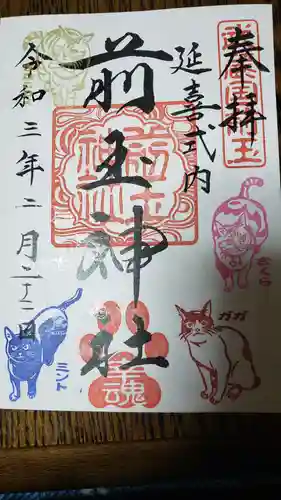 奉拝
延喜式内
前玉神社
令和三年二月二十二日
さくら
ガガ
ミント